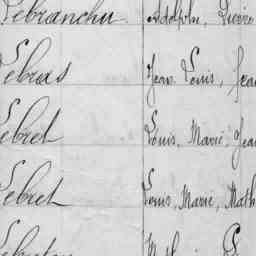 Lebranchu Adolphe, Pierre
Lebras Jean Louis, Jean
Lebret Louis, Marie, Jean
Lebret Louis, Marie, Math
Lebreton